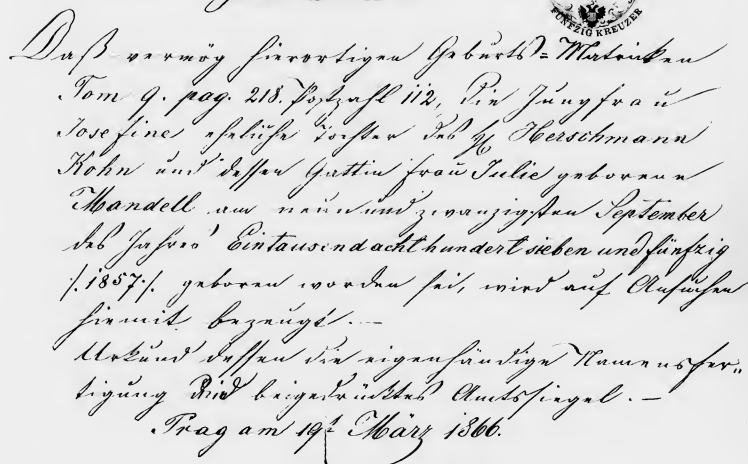 FÜNFZIG KREUZER
Daß vermög hierortigen Geburts=Matriken
Tom 9. pag. 218. Postzahl 112, die Jungfrau
Josefine eheliche Tochter des H Herschmann
Kohn und dessen Gattin Frau Julie geborene
Mandell am neun und zwanzigsten September
des Jahres Eintausendachthundert sieben und fünfzig
/.1857./. geboren worden sei, wird auf Ansuchen
hiemit bezeugt.—
Urkund dessen die eigenhändige Namensfer„
tigung und beigedrücktes Amtssiegel.—
Prag am 19t März 1866.